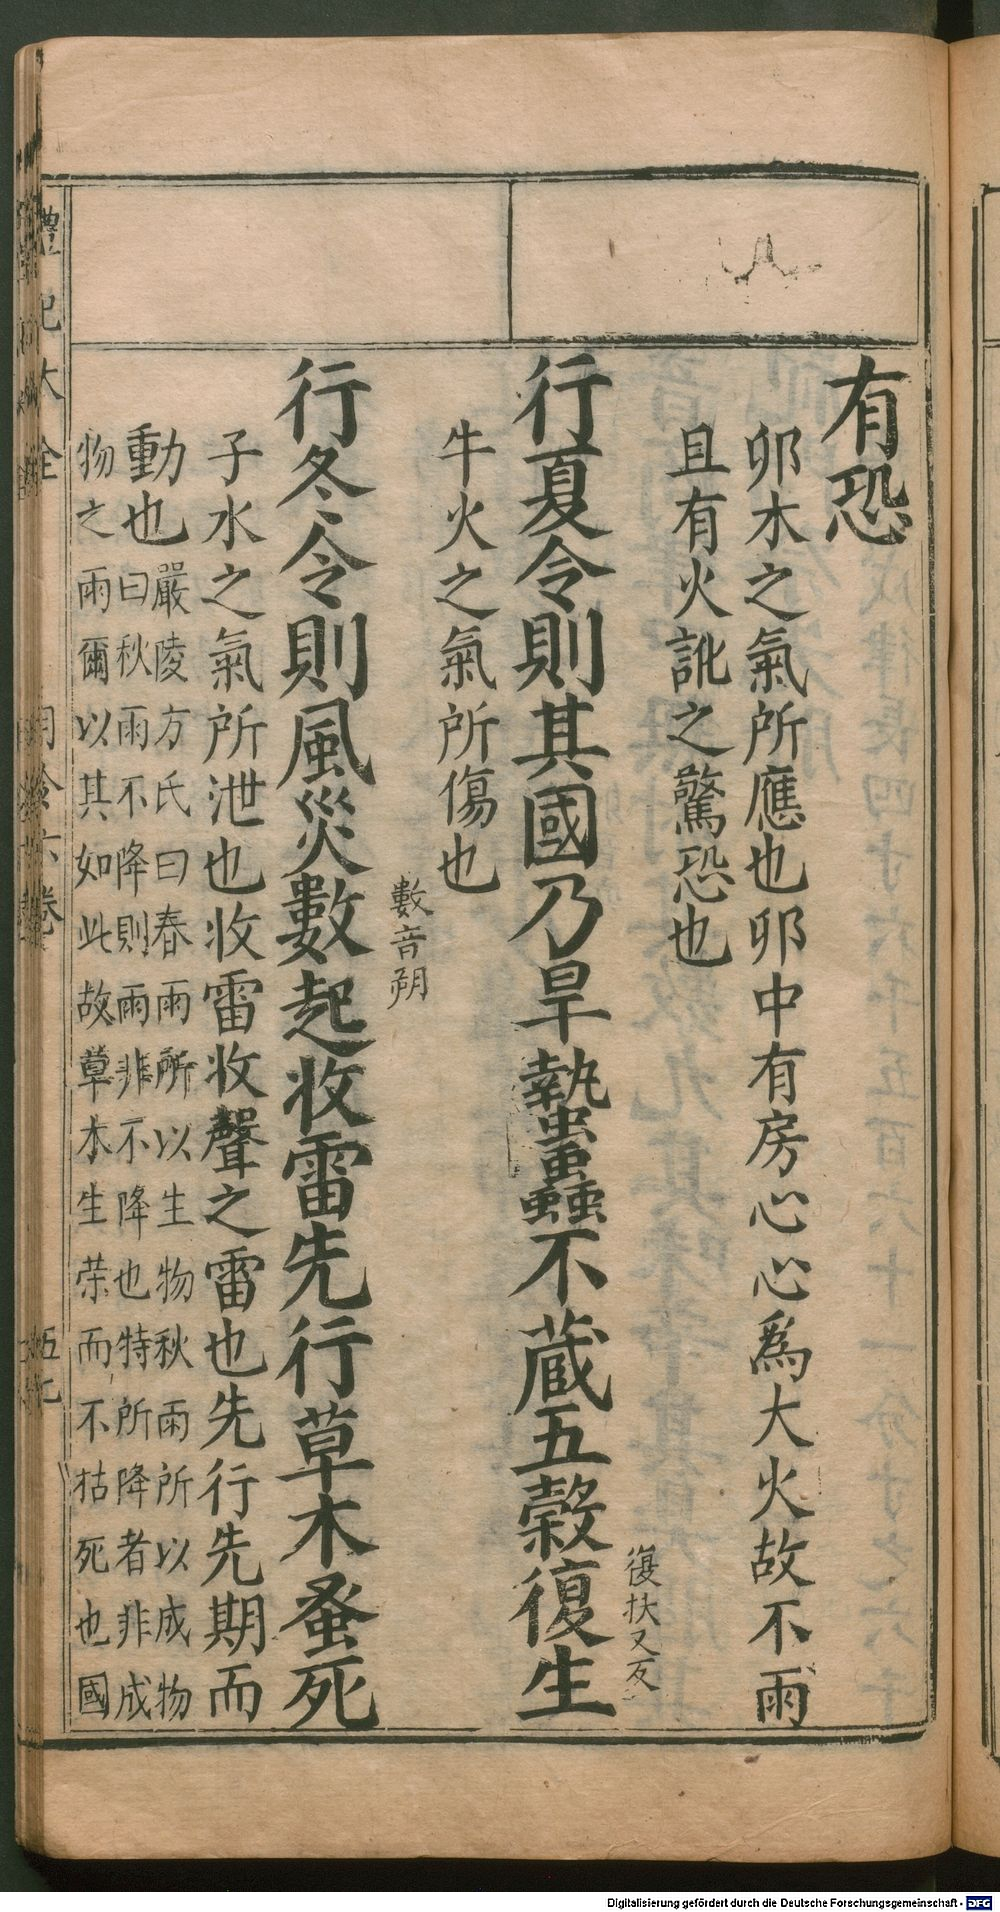 有恐
卯木之氣所應也卯中有房心心爲大火故不雨
且有火訛之驚恐也
復扶又反
行夏令則其國乃旱蟄蟲不蔵五穀復生
牛火之氣所傷也
數音朔
行冬令則風災數起收雷先行草木蚤死
子水之氣所泄也收雷收聲之雷也先行先期而
動也
嚴陵方氏曰春雨所以生物秋雨所以成物
曰秋雨不降則雨非不降也特所降者非成
物之雨爾以其如此故草木生荣而不枯死也國
禮記大全
月令六卷
五七
Digitalisierung gefördert durch die Deutsche Forschungsgemeinschaft - DFG